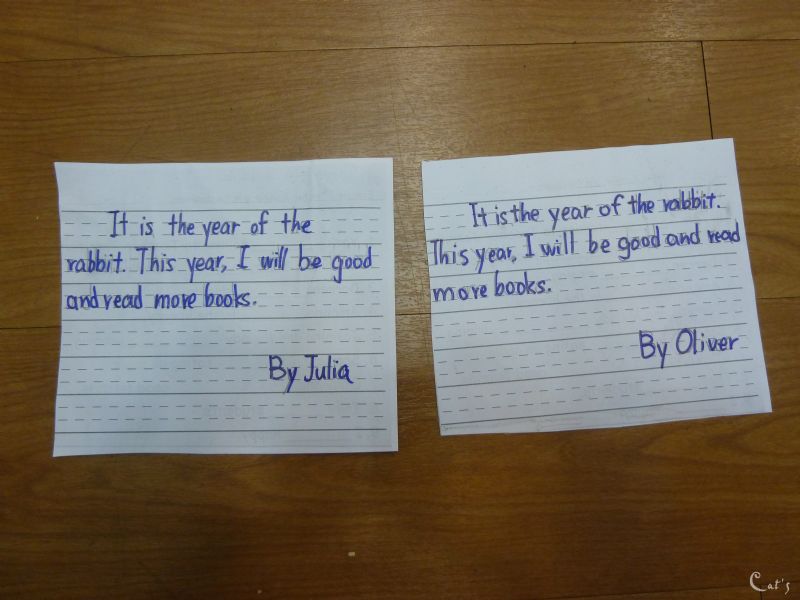 It is the year of the
rabbit. This year, I will be good
and read more books.
By Julia
It is the year of the rabbit.
This year, I will be good and read
more books.
By Oliver
Cat's